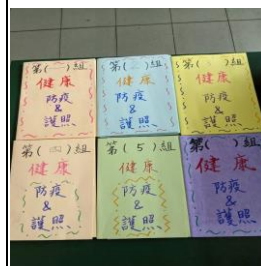 第( )組
健康
防疫
&
護照
第( )組
健康
防疫
&
護照
第( )組
健康
防疫
&
護照
第(四)組
健康
防疫
&
護照
第(5)組
健康
防疫
&
護照
第( )組
健康
防疫
&
護照